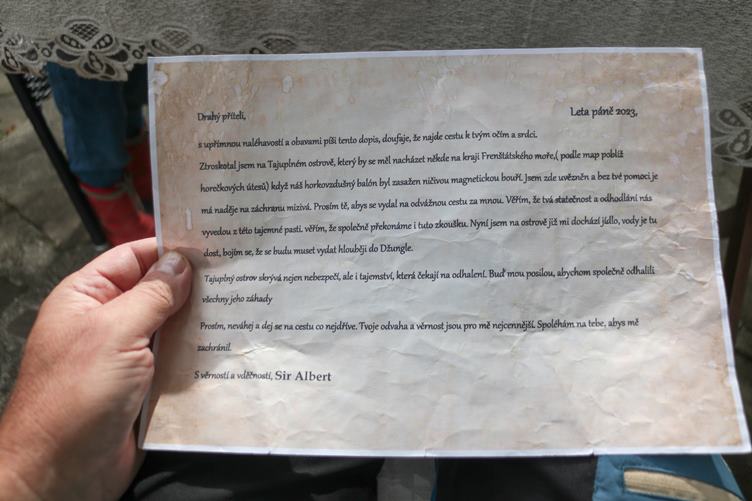 Drahý příteli,
Leta páně 2023,
s upřímnou naléhavostí a obavami píši tento dopis, doufaje, že najde cestu k tvým očím a srdci.
Ztroskotal jsem na Tajuplném ostrově, který by se měl nacházet někde na kraji Frenštátského moře,( podle map poblíž
horečkových útesů) když náš horkovzdušný balón byl zasažen ničivou magnetickou bouří. Jsem zde uvězněn a bez tvé pomoci je
má naděje na záchranu mizivá. Prosím tě, abys se vydal na odvážnou cestu za mnou. Věřím, že tvá statečnost a odhodlání nás
vyvedou z této tajemné pasti. věřím, že společně překonáme i tuto zkoušku. Nyní jsem na ostrově již mi dochází jídlo, vody je tu
dost, bojím se, že se budu muset vydat hlouběji do Džungle.
Tajuplný ostrov skrývá nejen nebezpečí, ale i tajemství, která čekají na odhalení. Buď mou posilou, abychom společně odhalili
všechny jeho záhady
Prosím, neváhej a dej se na cestu co nejdříve. Tvoje odvaha a věrnost jsou pro mě nejcennější. Spoléhám na tebe, abys mě
zachránil.
S věrností a vděčností, Sir Albert